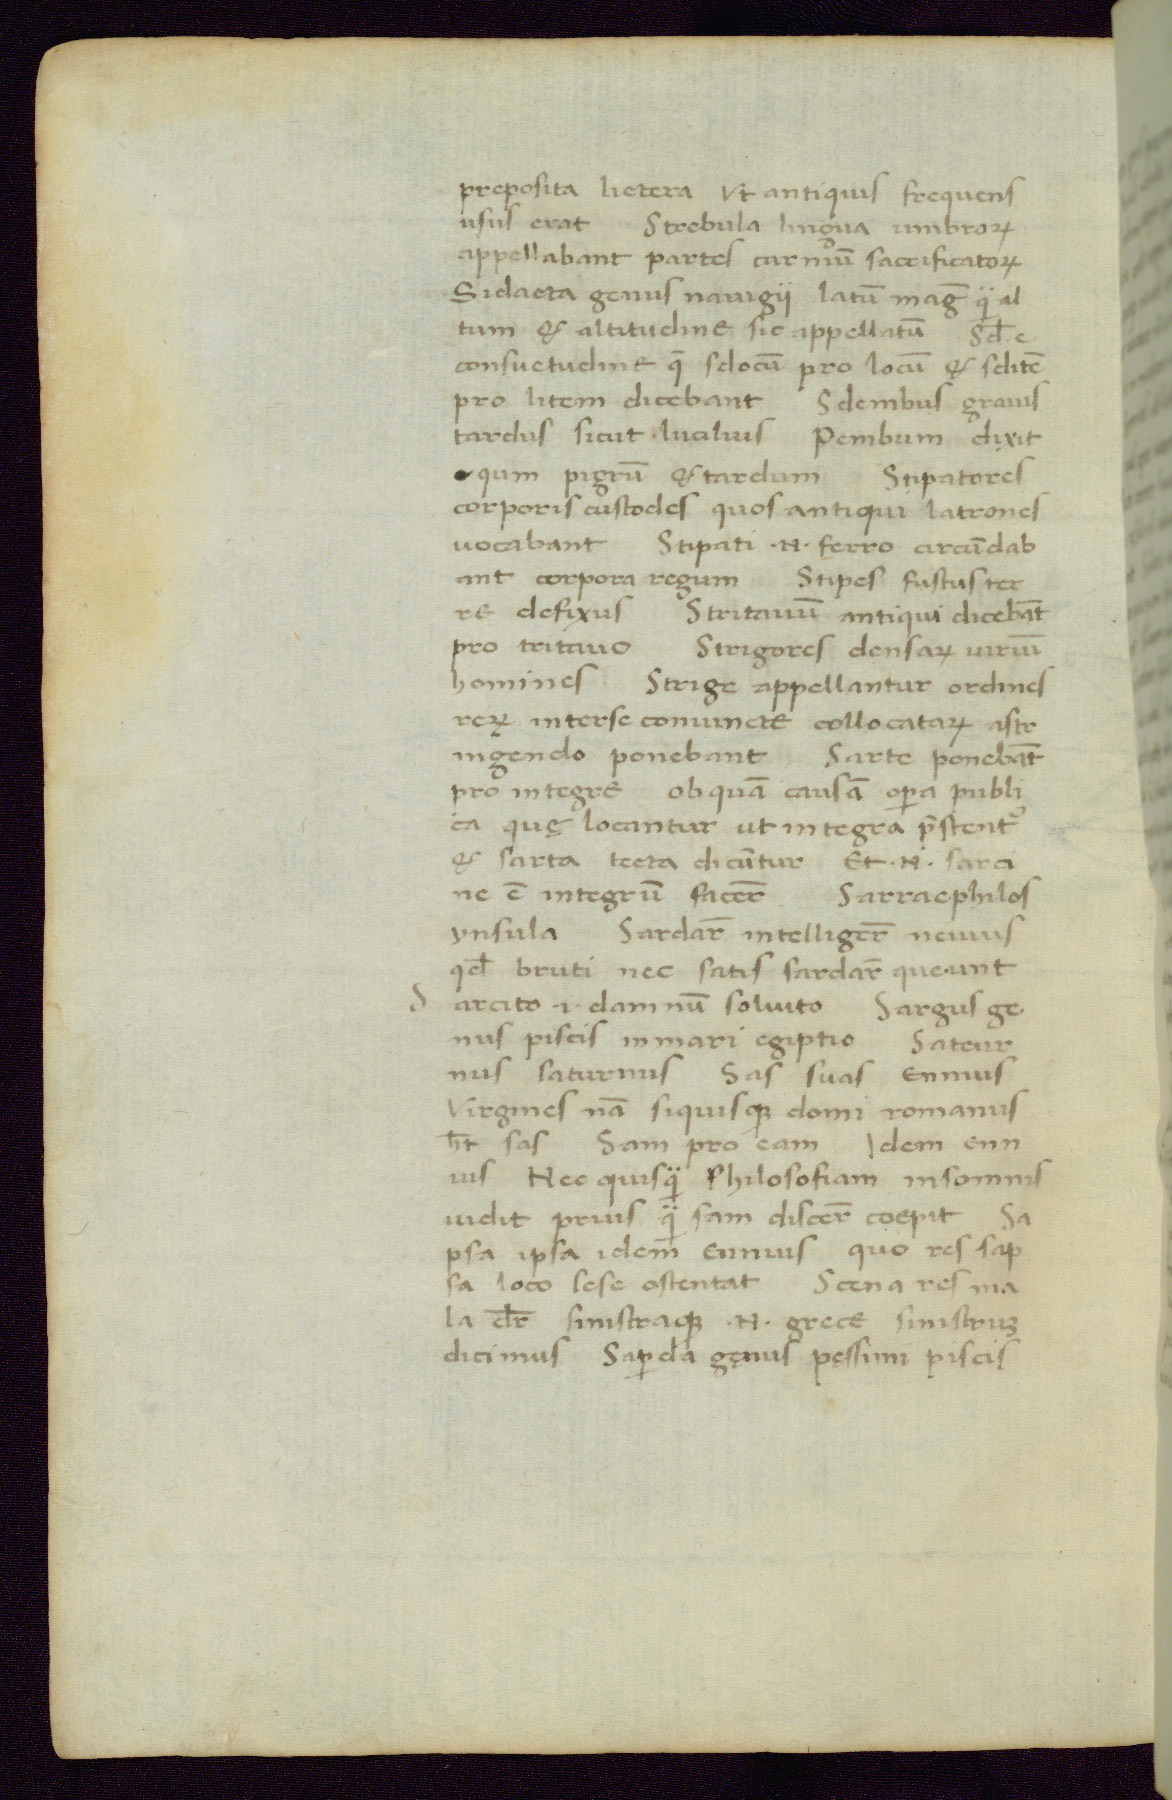 preposita littera Vt antiquis frequens
usus erat Strebula lingua umbroꝝ
appellabant partes carniū sacrificatoꝝ
Sidacta genus nauigij latū maḡ q̄ al
tum & altitudine sic appellatū Sꝺ̄ e
consuetudine q̄ sdocū pro locū & sditē
pro litem dicebant Sdembus grauis
tardus sicut lucilius Pembum dixit
equm pigrū & tardum Stipatores
corporis custodes quos antiqui latrones
uocabant Stipati ·N· ferro circūdab
ant corpora regum Stipes fustus ter
re defixus Stritauū antiqui dicebāt
pro tritauo Strigores densaꝝ uiriū
homines Strige appellantur ordines
reꝝ interse coniuncte collocataꝝ astr
ingendo ponebant Sarte ponebāt
pro integre ob quā causā oꝑa publi
ca quę locantur ut integra p̄stent᷑
& sarta tecta dicūtur Et ·N· sarci
ne ē integrū facer̄ Sarraephilos
ynsula Sardar̄ intelliger̄ neuius
qd̄ bruti nec satis sardar̄ queunt
Sarcito ·i· damnū soluito Sargus ge
nus piscis in mari egiptio Sateur
nus saturnus Sas suas Ennius
Virgines nā siquisqꝫ domi romanus
h̄t sas Sam pro eam Idem enn
ius Nec quisq̄ Philosofiam insomnis
uidit prius q̄ sam discer̄ coepit Sa
psa ipsa idem̄ Ennius quo res sap
sa loco sese ostentat Scena res ma
la dr̄ sinistraqꝫ ·N· grece sinistruꝫ
dicimus Saꝑda genus pessimi piscis